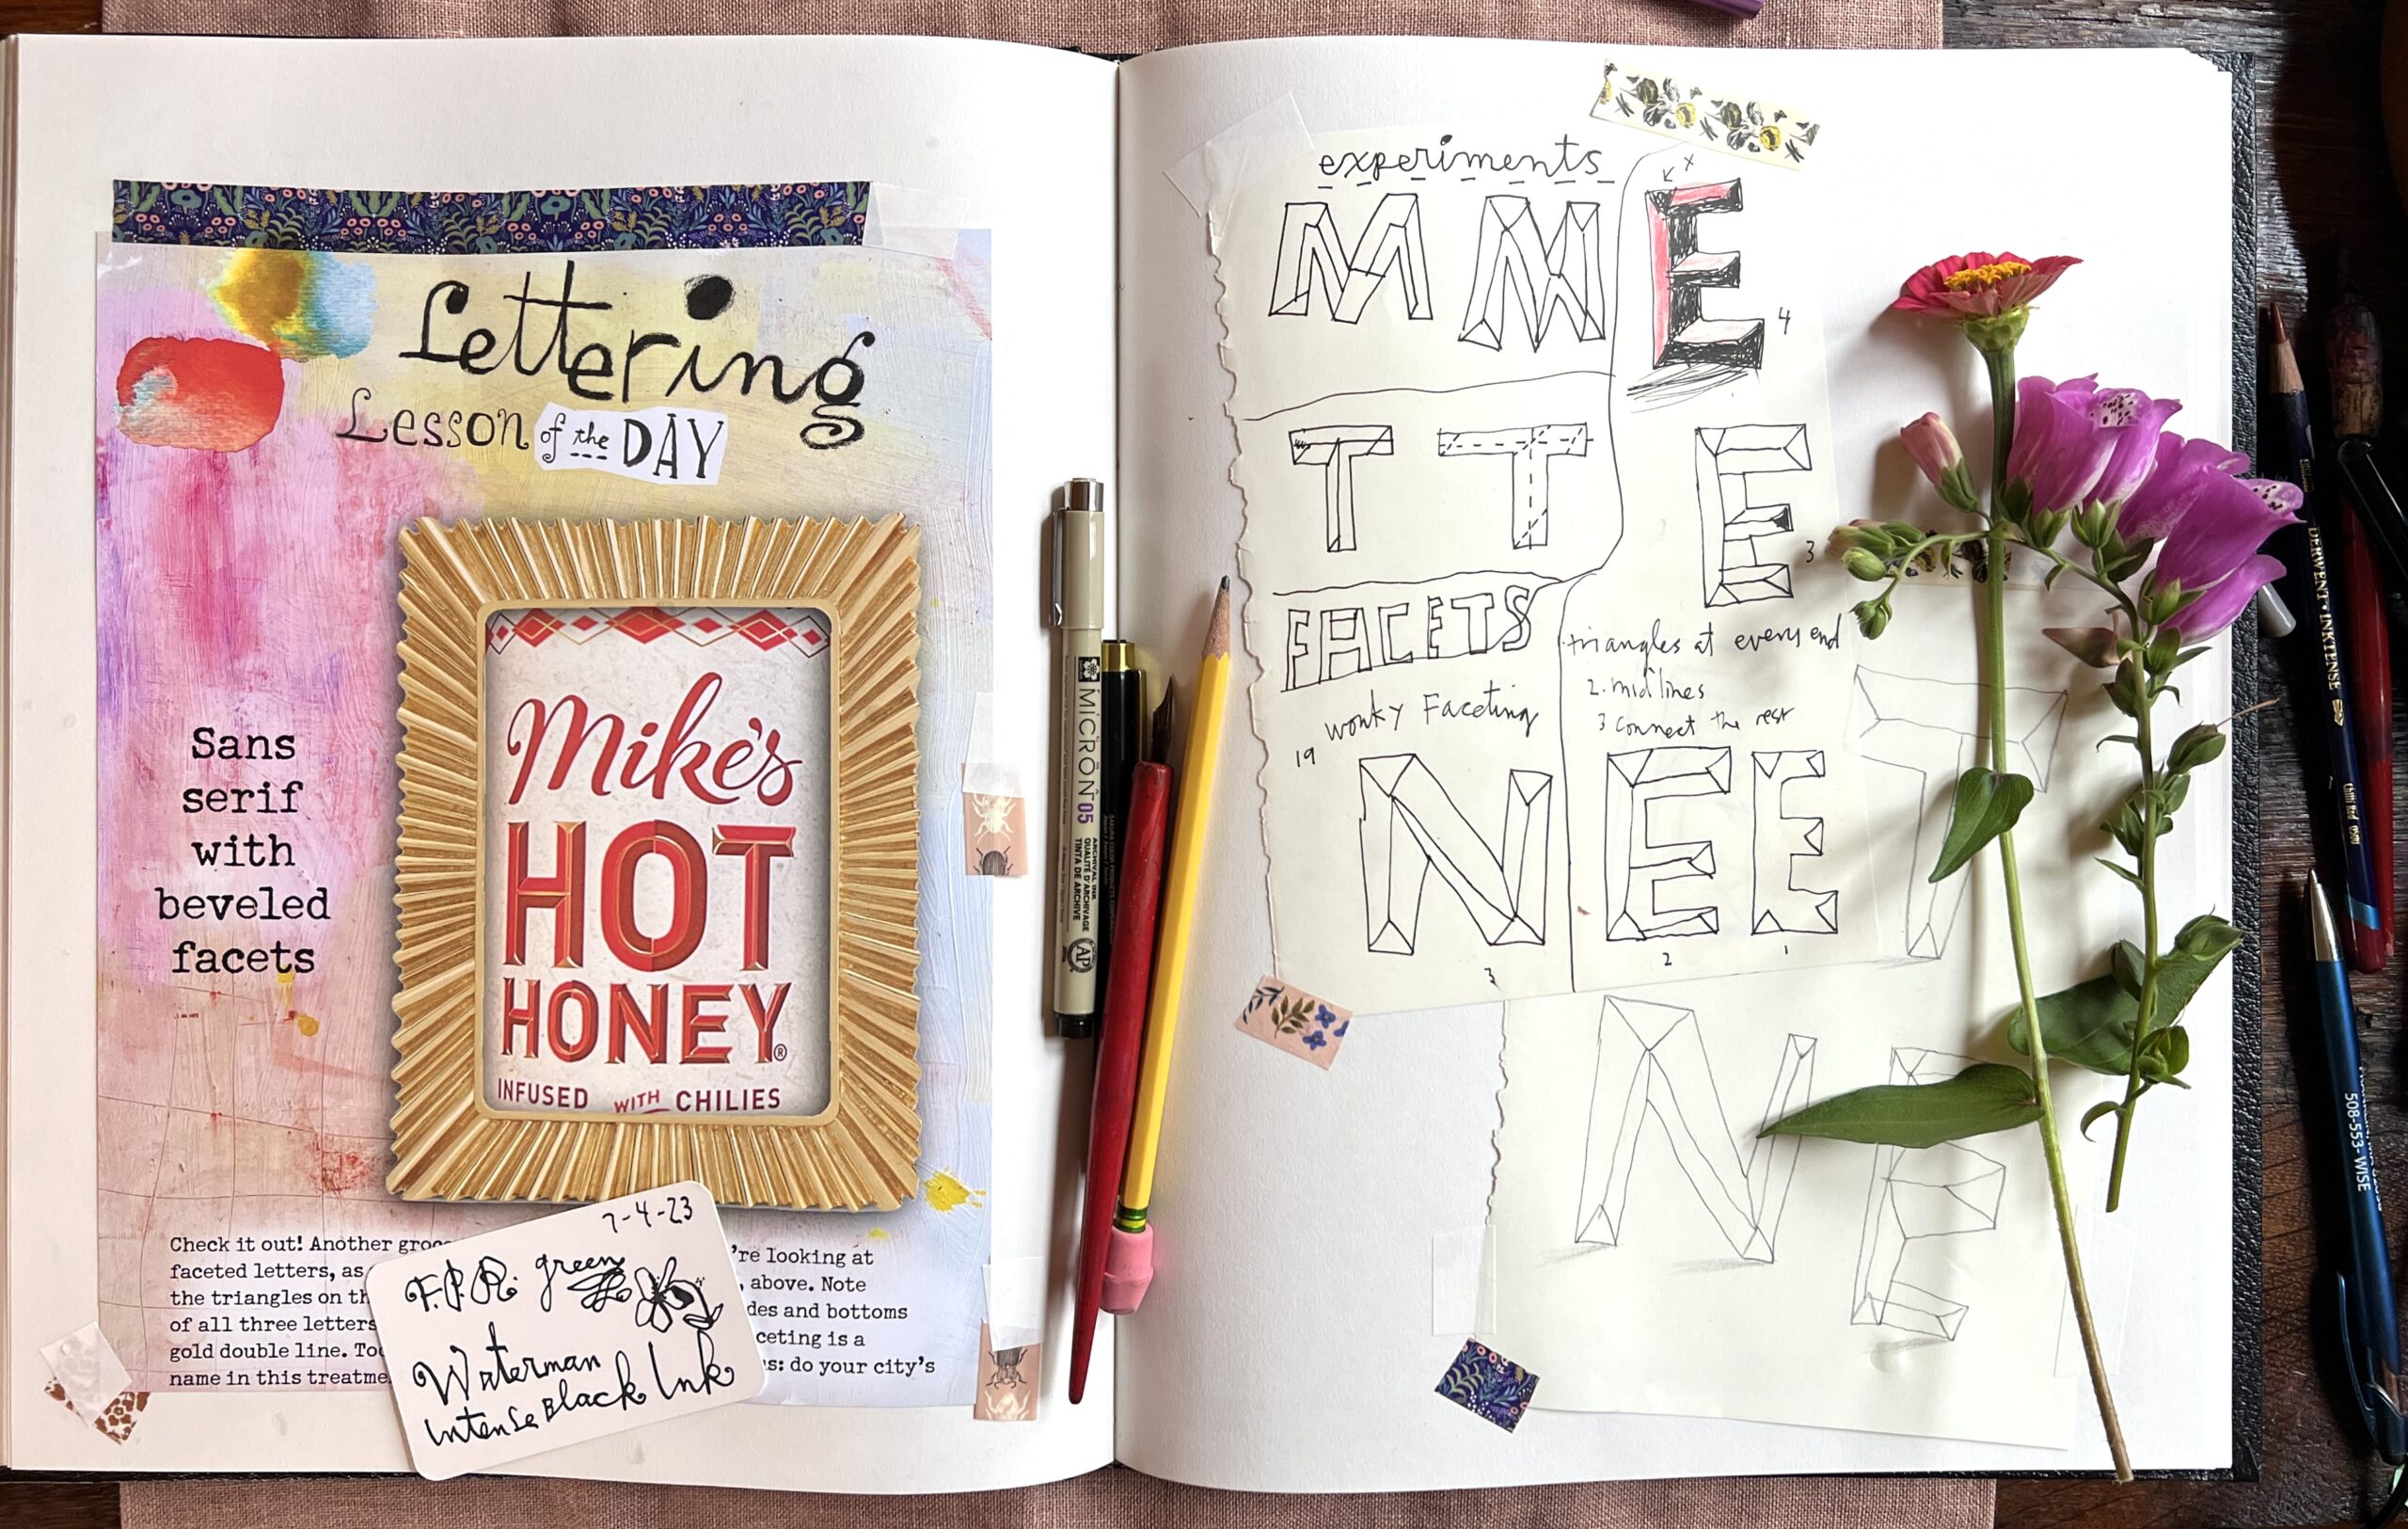 Lettering
Lesson of the DAY
Sans
serif
with
beveled
facets
Mike's
HOT
HONEY®
INFUSED WITH CHILIES
Check it out! Another
faceted letters, as
the triangles on
of all three letters
gold double line.
name in this
're looking at
, above. Note
and bottoms
is a
: do your city's
7-4-23
F.P.R. green
Waterman
Intense Black Ink
MICRON 05
ARCHIVAL INK
QUALITÉ D'ARCHIVAGE
TINTA DE ARCHIVE
AP
experiments
M M E
x
4
T T E
3
FACETS
wonky Faceting
19
triangles at every end
2. mid lines
3 connect the rest
N E E
3 2 1
T
N E
DERWENT • INKTENSE
508-553-WISE